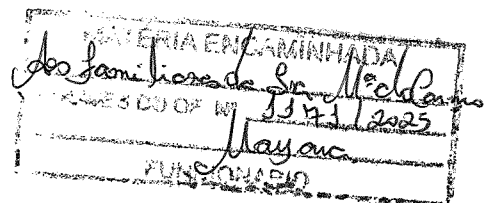 MATÉRIA ENCAMINHADA
Aos familiares da Sra. Mª do Carmo
ATRAVÉS DO OF Nº 1171/2025
Mayara
FUNCIONÁRIO